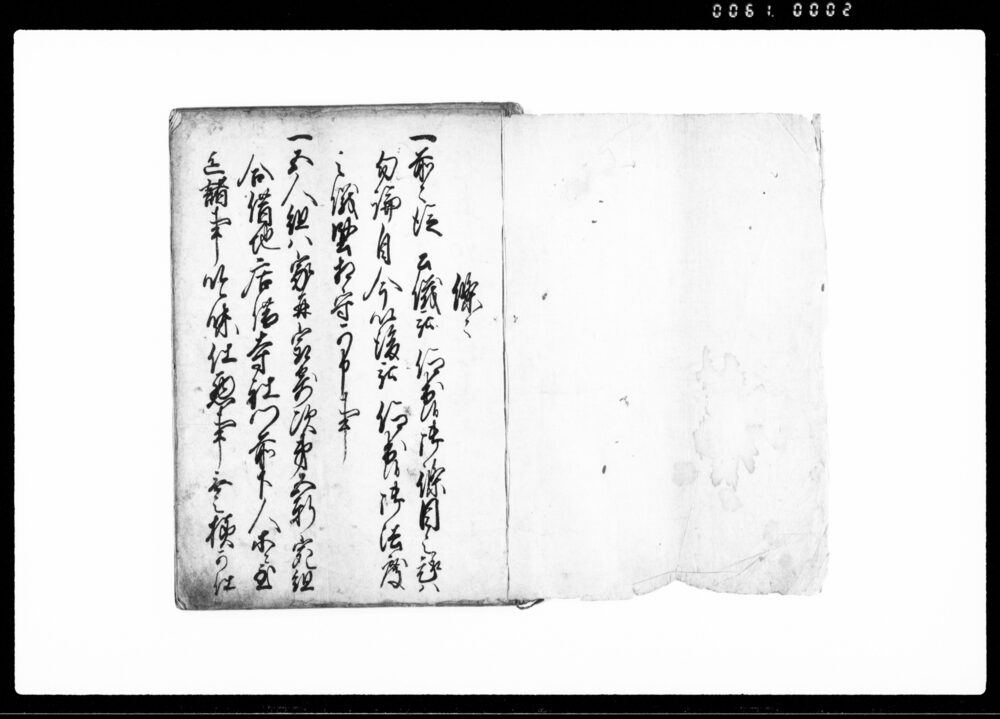 0061. 0002
條々
一前々従 公儀被 仰出候御條目之趣ハ
勿論自今以後被 仰出候御法度
之儀堅相守可申事
一五人組ハ家並最寄次第五軒宛組
合借地店借寺社門前下人等ニ至
迄諸事吟味仕悪事無之様可仕